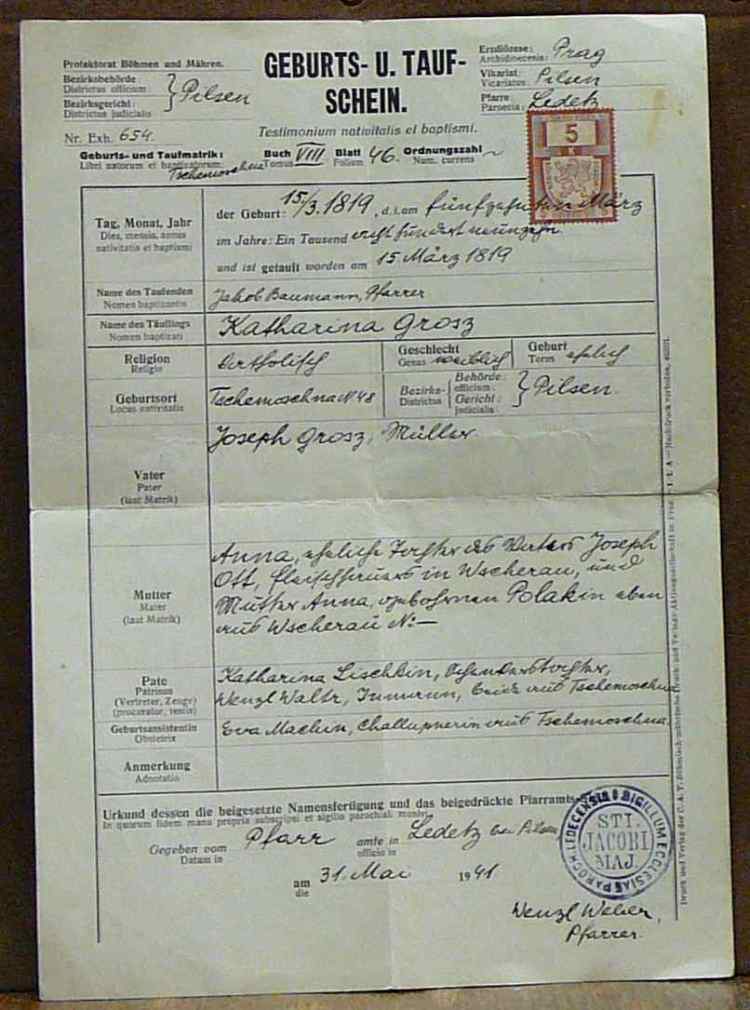 Protektorat Böhmen und Mähren.
Bezirksbehörde:
Districtus officium:
Bezirksgericht:
Districtus judicialis
} Pilsen
Nr. Exh. 654.
GEBURTS- U. TAUF-
SCHEIN.
Testimonium nativitatis et baptismi.
Erzdiözese: Prag
Archidioecesis:
Vikariat: Pilsen
Vicariatus:
Pfarre: Ledetz
Paroecia:
5
Geburts- und Taufmatrik: Tschemoschna
Libri natorum et baptizatorum
Buch VIII Blatt 46. Ordnungszahl
Tomus Folium Num. currens
Tag, Monat, Jahr
Dies, mensis, annus
nativitatis et baptismi
der Geburt: 15./3. 1819, d. i. am fünfzehnten März
im Jahre: Ein Tausend achthundert neunzehn
und ist getauft worden am 15 März 1819
Name des Taufenden
Nomen baptizantis
Jakob Baumann, Pfarrer
Name des Täuflings
Nomen baptizati
Katharina Grosz
Religion
Religio
katholisch
Geschlecht
Genus weiblich
Geburt
Torus ehelich
Geburtsort
Locus nativitatis
Tschemoschna N 48
Bezirks-
Districtus
Behörde:
officium:
Gericht:
judicialis:
} Pilsen.
Vater
Pater
(laut Matrik)
Joseph Grosz, Müller.
Mutter
Mater
(laut Matrik)
Anna, eheliche Tochter des Vaters Joseph
Ott, Fleischhauers in Wscherau, und
Mutter Anna, geborenen Polakin eben
aus Wscherau N: —
Pate
Patrinus
(Vertreter, Zeuge)
(procurator, testis)
Katharina Lischkin,
Wenzl Waltr, beide aus Tschemoschna
Geburtsassistentin
Obstetrix
Eva Machin, Challupnerin aus Tschemoschna.
Anmerkung
Adnotatio
Urkund dessen die beigesetzte Namensfertigung und das beigedrückte Pfarramts
In quorum fidem manu propria subscripsi et sigillo parochiali munivi
Gegeben vom Pfarr amte in Ledetz bei Pilsen
Datum in officio in
am 31. Mai 1941
die
SIGILLUM ECCLESIAE PAROCH. LEDECENSIS
STI.
JACOBI
MAJ.
Wenzl Weber,
Pfarrer.